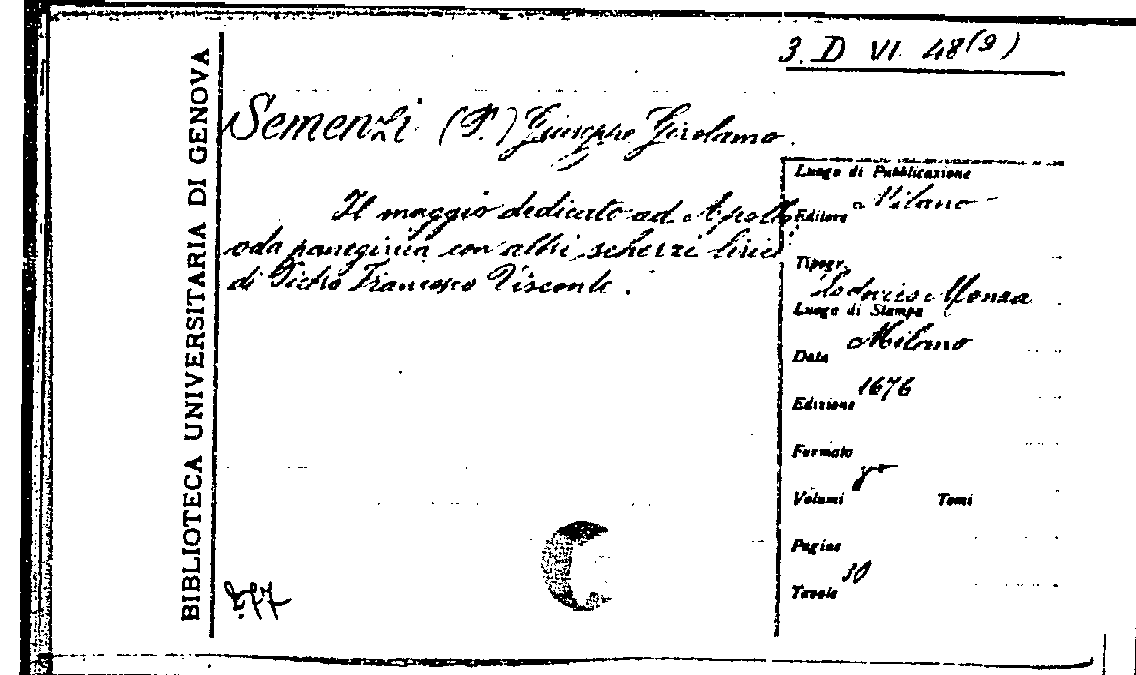 3. D VI. 48(9)
BIBLIOTECA UNIVERSITARIA DI GENOVA
Semenzi (P.) Giuseppe Girolamo.
Il maggio dedicato ad Apollo
oda panegirica con altri scherzi lirici
di Pietro Francesco Visconte.
Luogo di Pubblicazione
Milano
Editore
Tipogr.
Lodovico Monza
Luogo di Stampa
Milano
Data
1676
Edizione
Formato
8º
Volumi Tomi
Pagine
30
Tavole